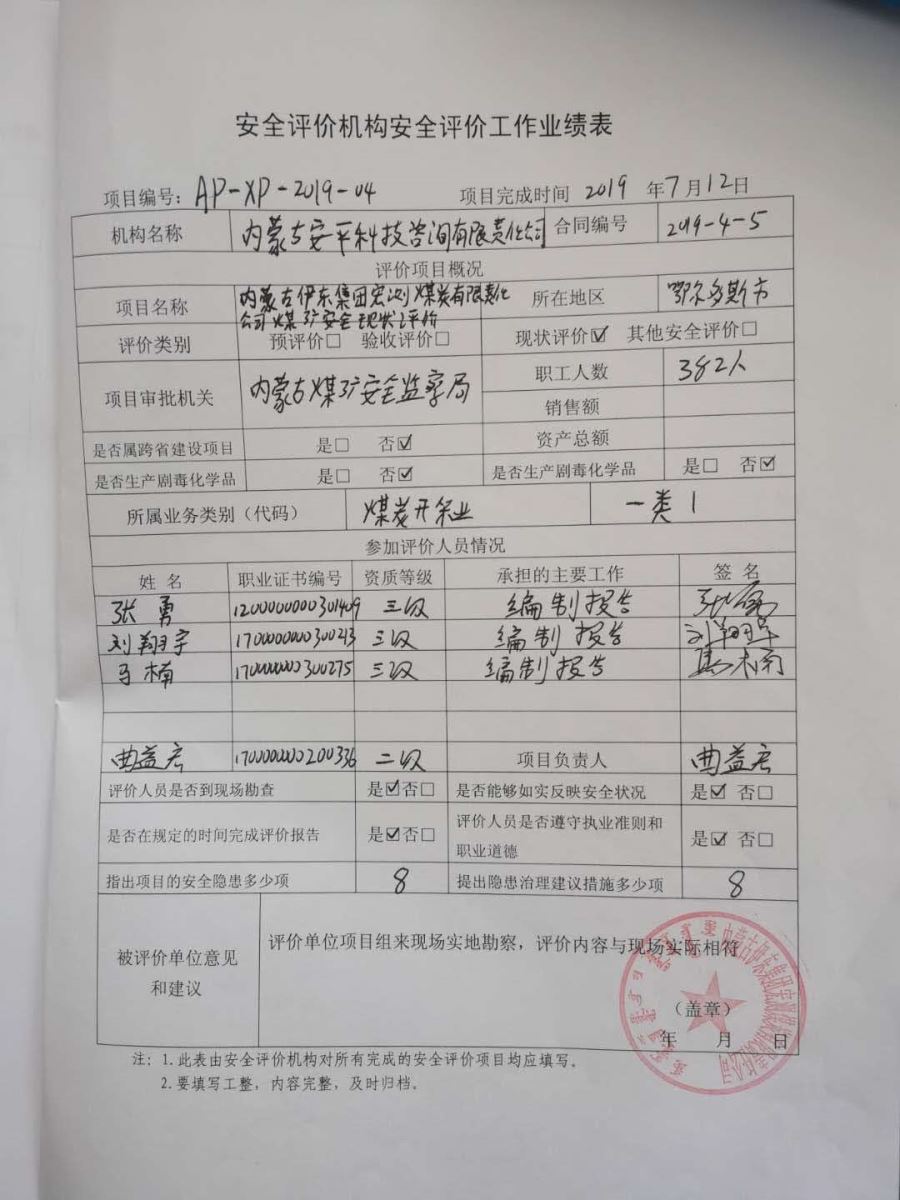 安全评价机构安全评价工作业绩表
项目编号：AP-XP-2019-04 项目完成时间 2019 年7月12日
机构名称 内蒙古安平科技咨询有限责任公司 合同编号 2019-4-5
评价项目概况
项目名称 内蒙古伊东集团宏测煤炭有限责任 所在地区 鄂尔多斯市
公司煤矿安全现状评价
评价类别 预评价□ 验收评价□ 现状评价☑ 其他安全评价□
项目审批机关 内蒙古煤矿安全监察局 职工人数 382人
销售额
资产总额
是否属跨省建设项目 是□ 否☑
是否生产剧毒化学品 是□ 否☑ 是否生产剧毒化学品 是□ 否☑
所属业务类别（代码） 煤炭开采业 一类 1
参加评价人员情况
姓 名 职业证书编号 资质等级 承担的主要工作 签 名
张勇 1200000000301409 三级 编制报告 张勇
刘翔宇 1700000000300213 三级 编制报告 刘翔宇
马楠 1700000000300275 三级 编制报告 马楠
曲益宏 1700000000200336 二级 项目负责人 曲益宏
评价人员是否到现场勘查 是☑否□ 是否能够如实反映安全状况 是☑ 否□
是否在规定的时间完成评价报告 是☑否□ 评价人员是否遵守执业准则和
职业道德 是☑ 否□
指出项目的安全隐患多少项 8 提出隐患治理建议措施多少项 8
被评价单位意见
和建议
评价单位项目组来现场实地勘察，评价内容与现场实际相符
（盖章）
年 月 日
注：1.此表由安全评价机构对所有完成的安全评价项目均应填写。
2.要填写工整，内容完整，及时归档。